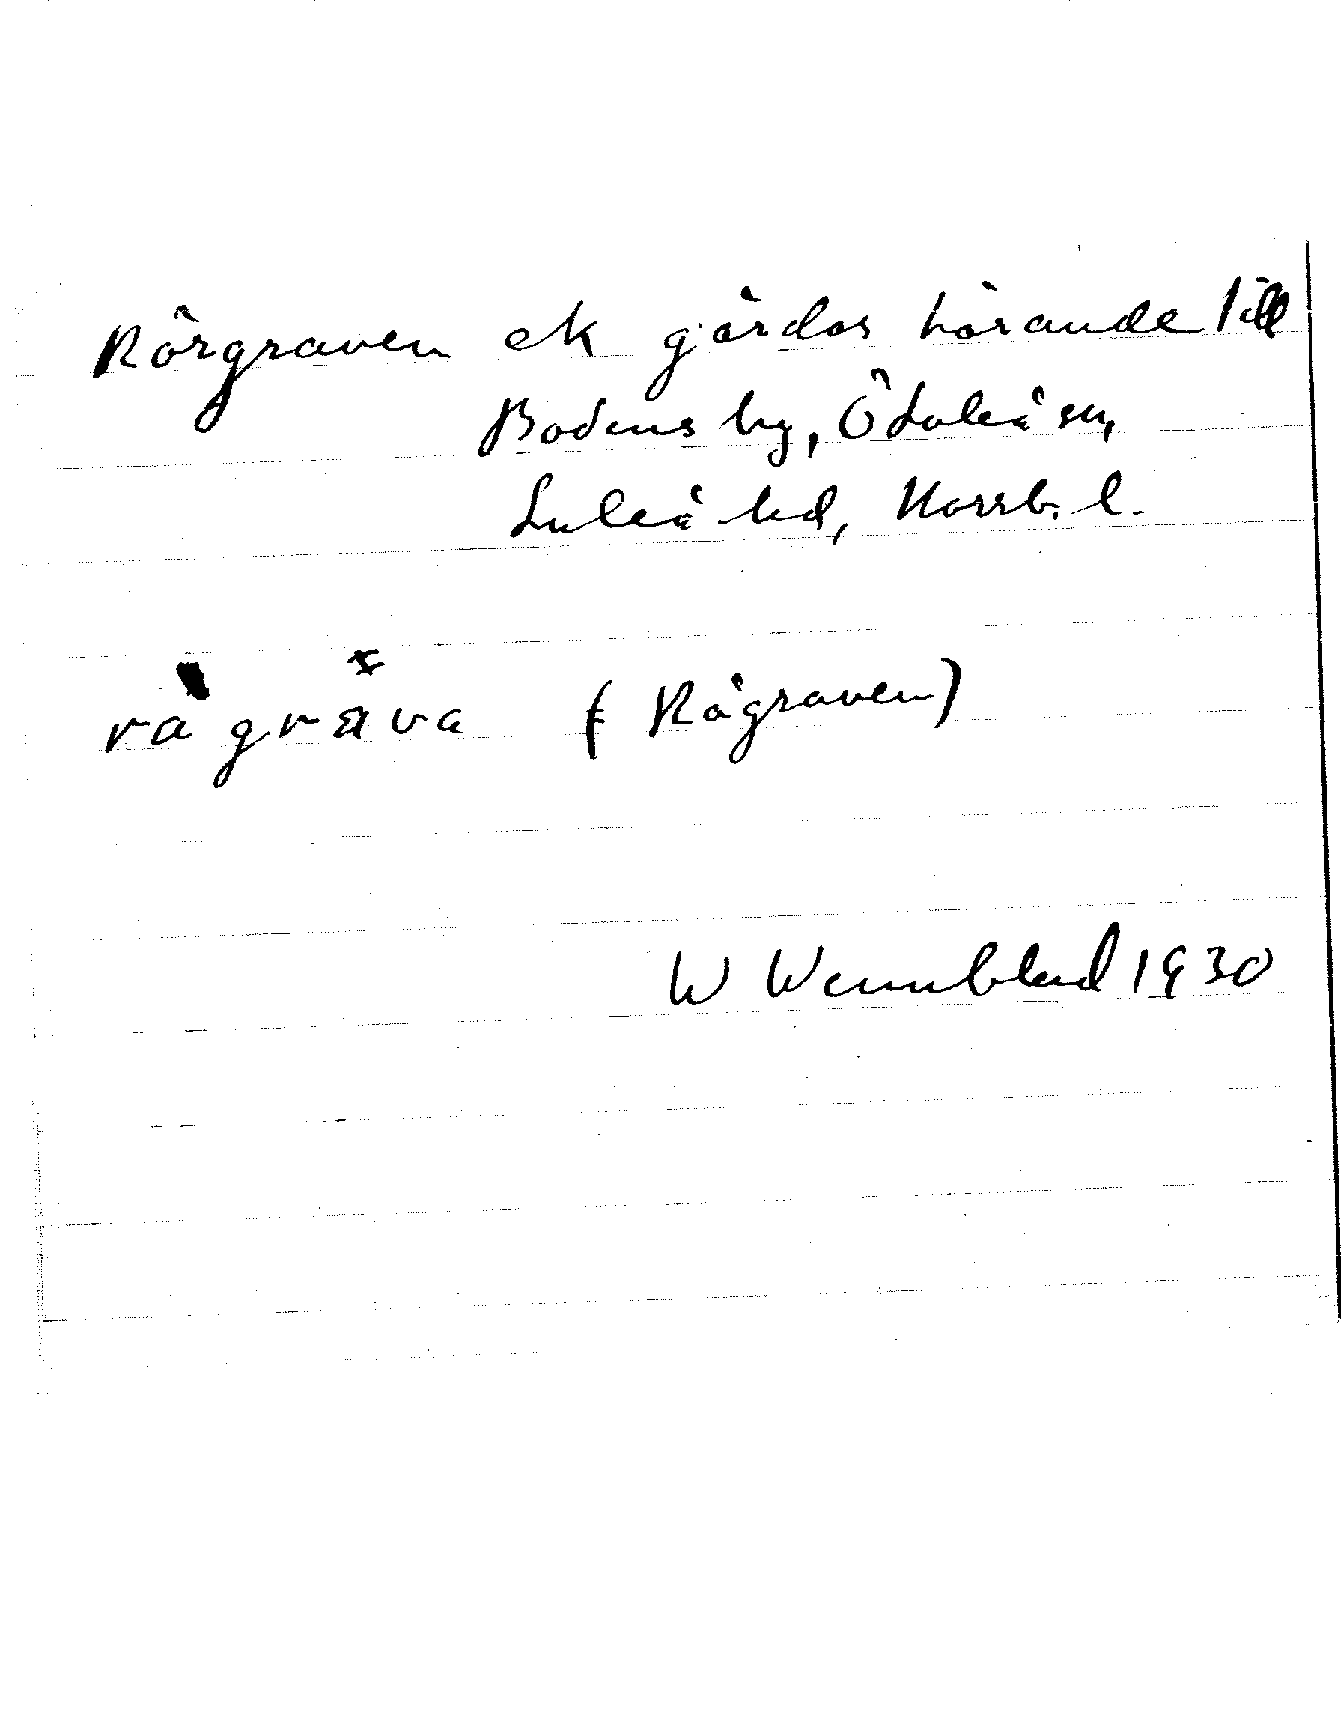 Rörgraven ek gårdar hörande till
Bodens by, ÖLuleå sn,
Luleå hd, Norrb. l.
rå gräva (Rågraven)
W Wennblad 1930